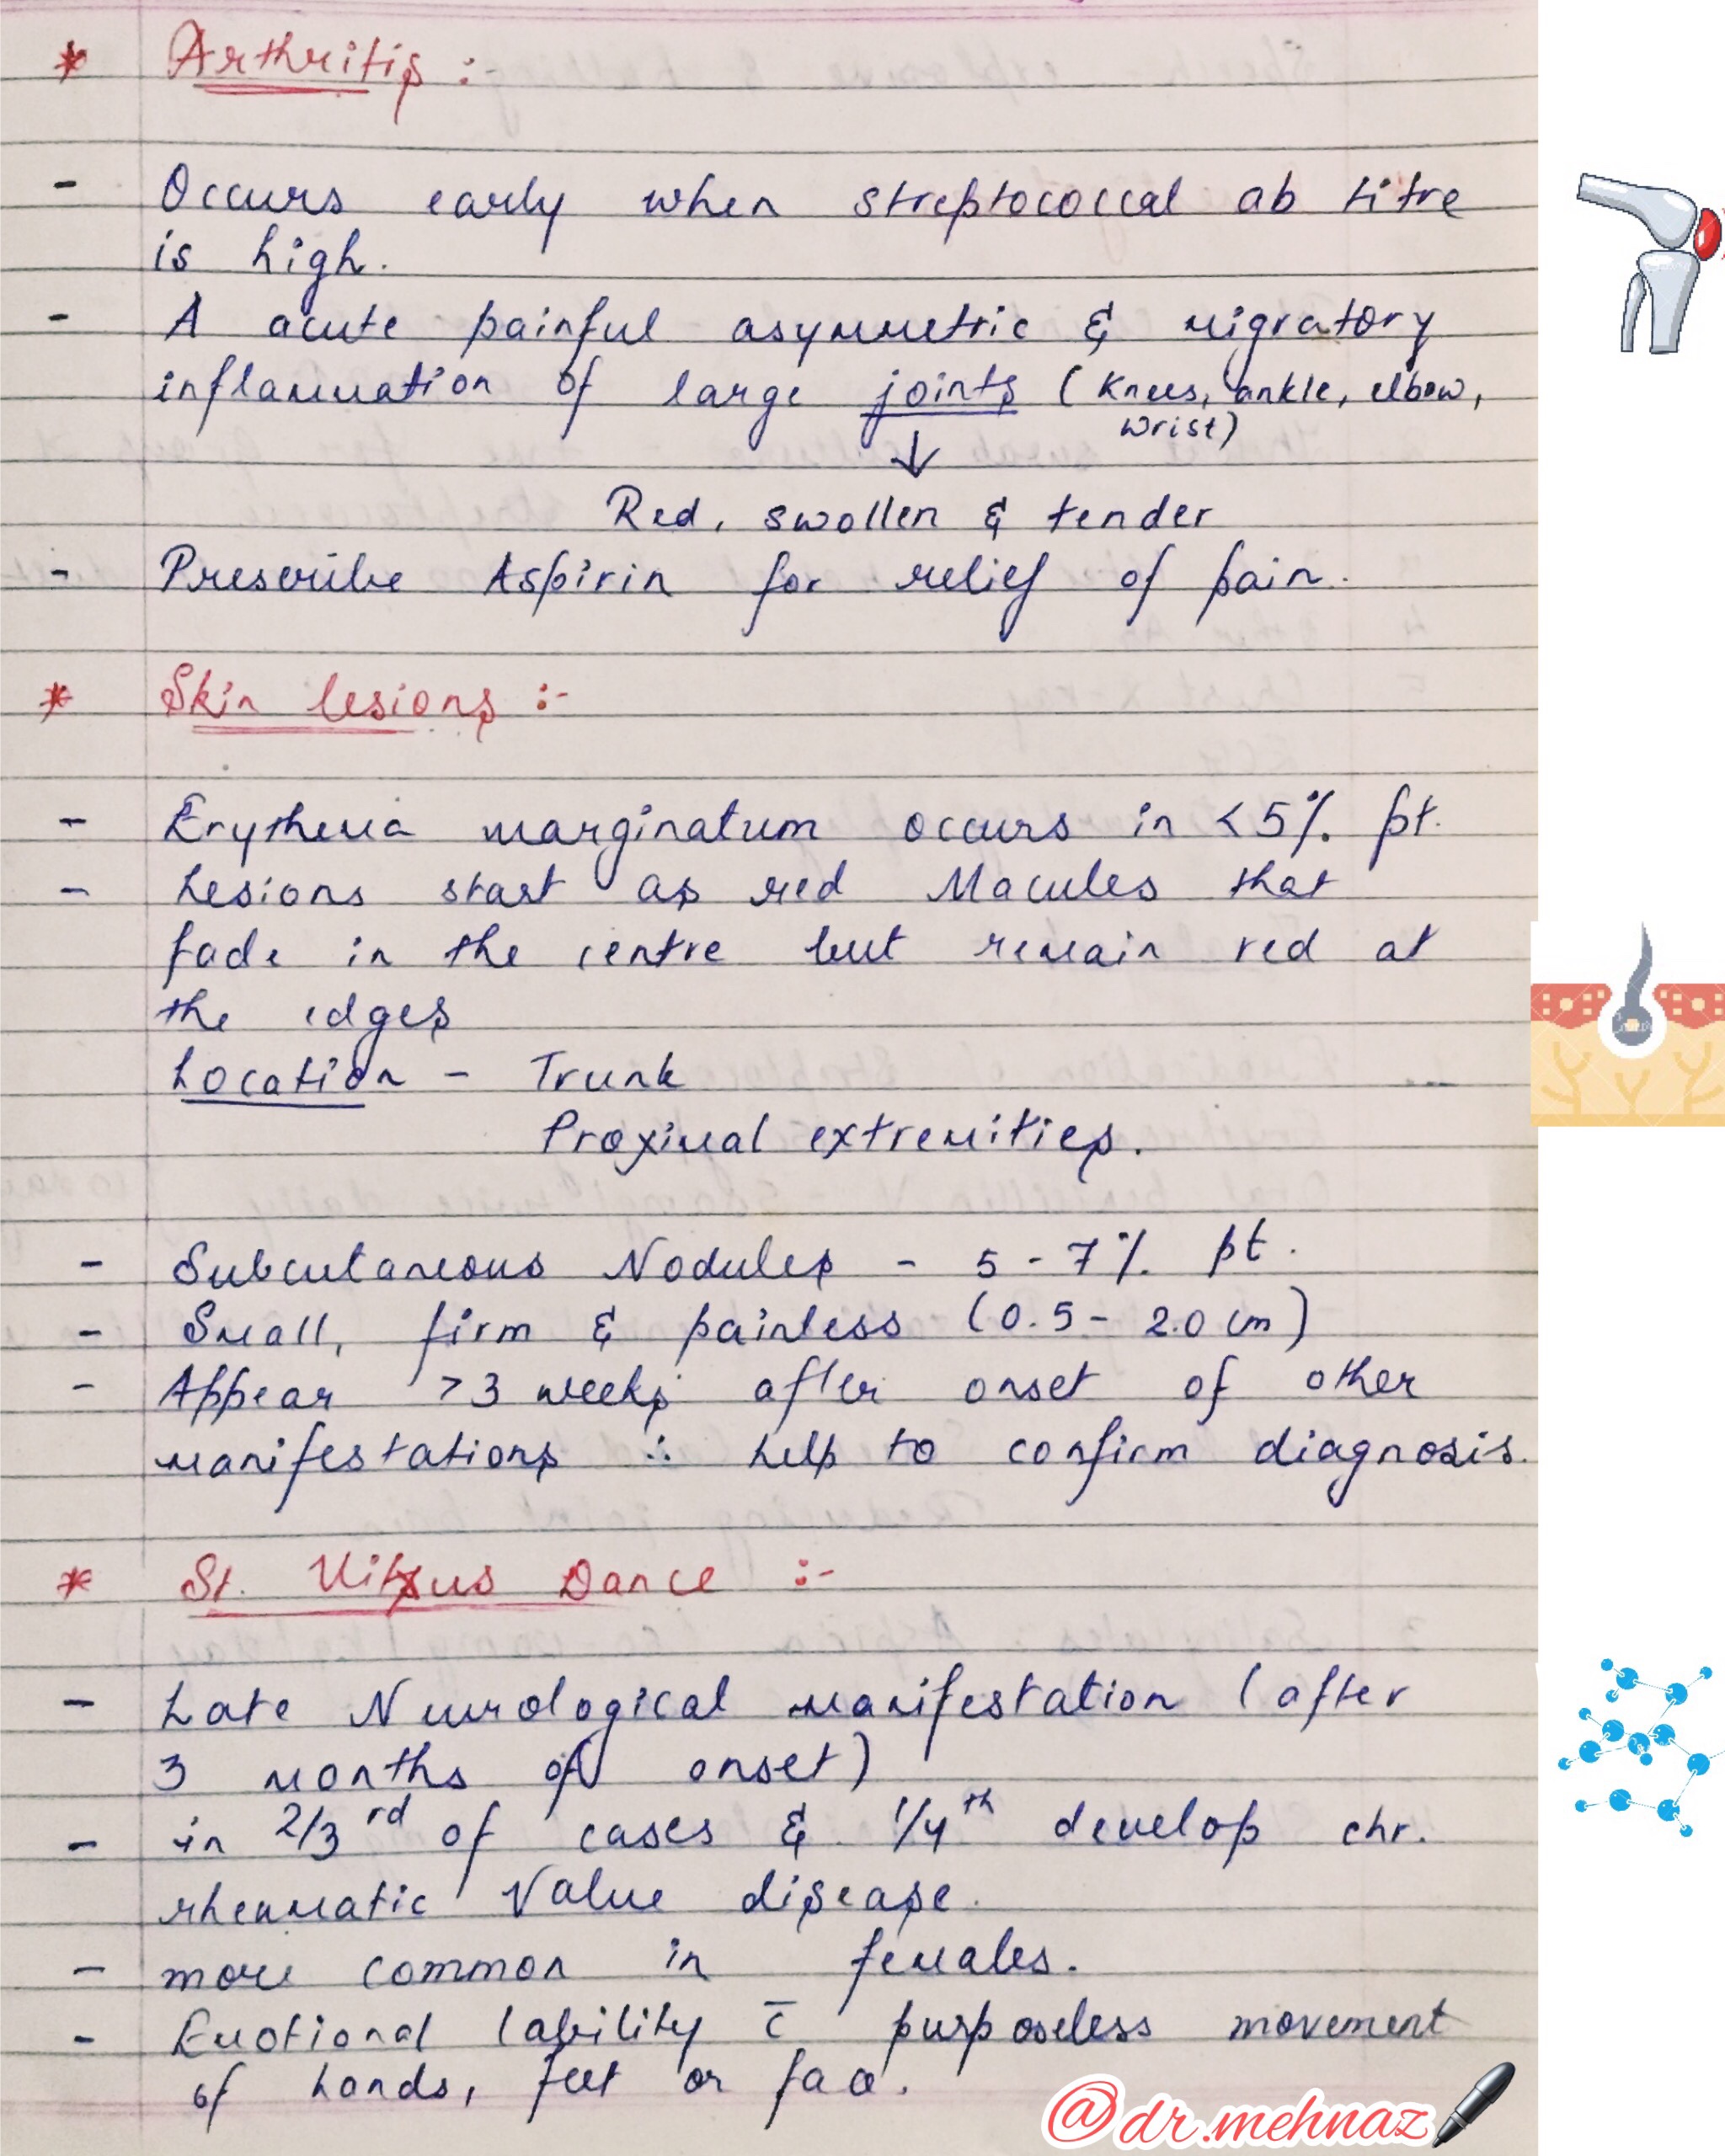 * Arthritis :-
- Occurs early when streptococcal ab titre
is high.
- A acute painful asymmetric & migratory
inflammation of large joints (Knees, ankle, elbow,
wrist)
↓
Red, swollen & tender
- Prescribe Aspirin for relief of pain.
* Skin lesions :-
- Erythema marginatum occurs in <5% pt.
- Lesions start as red Macules that
fade in the centre but remain red at
the edges
Location - Trunk
Proximal extremities.
- Subcutaneous Nodules - 5 - 7% pt.
- Small, firm & painless (0.5 - 2.0 cm)
- Appear >3 weeks after onset of other
manifestations ∴ help to confirm diagnosis.
* St. Vitus Dance :-
- Late Neurological manifestation (after
3 months of onset)
- in 2/3rd of cases & 1/4th develop chr.
rheumatic Value disease.
- more common in females.
- Emotional lability c̄ purposeless movement
of hands, feet or face.
@dr.mehnaz